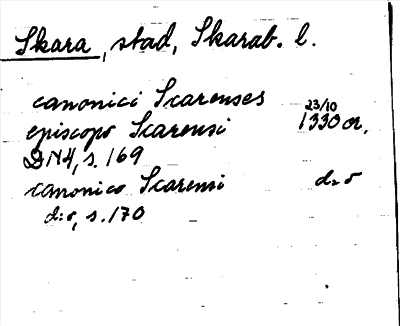 Skara, stad, Skarab. l.
canonici Scarenses
episcopo Scarensi 23/10 1330 or.
DN4, s. 169
canonico Scarensi d:o
d:o, s. 170